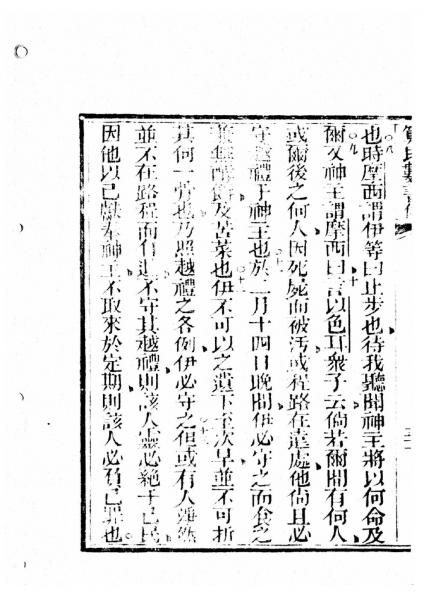 也時摩西謂伊等曰止步也待我聽聞神主將以何命及
爾又神主謂摩西曰言以色耳衆子云倘若爾間有何人
或爾後之何人因死屍而被汚或程路在遠處他尚且必
守越禮于神主也於二月十四日晚間伊必守之而食之
無酵餅及苦菜也伊不可以之遺下至次早並不可折
其何一骨也乃照越禮之各例伊必守之但或有人雖然
並不在路程而自遺不守其越禮則該人靈必絕于己民
因他以己獻奉神主不取來於定期則該人必負己罪也